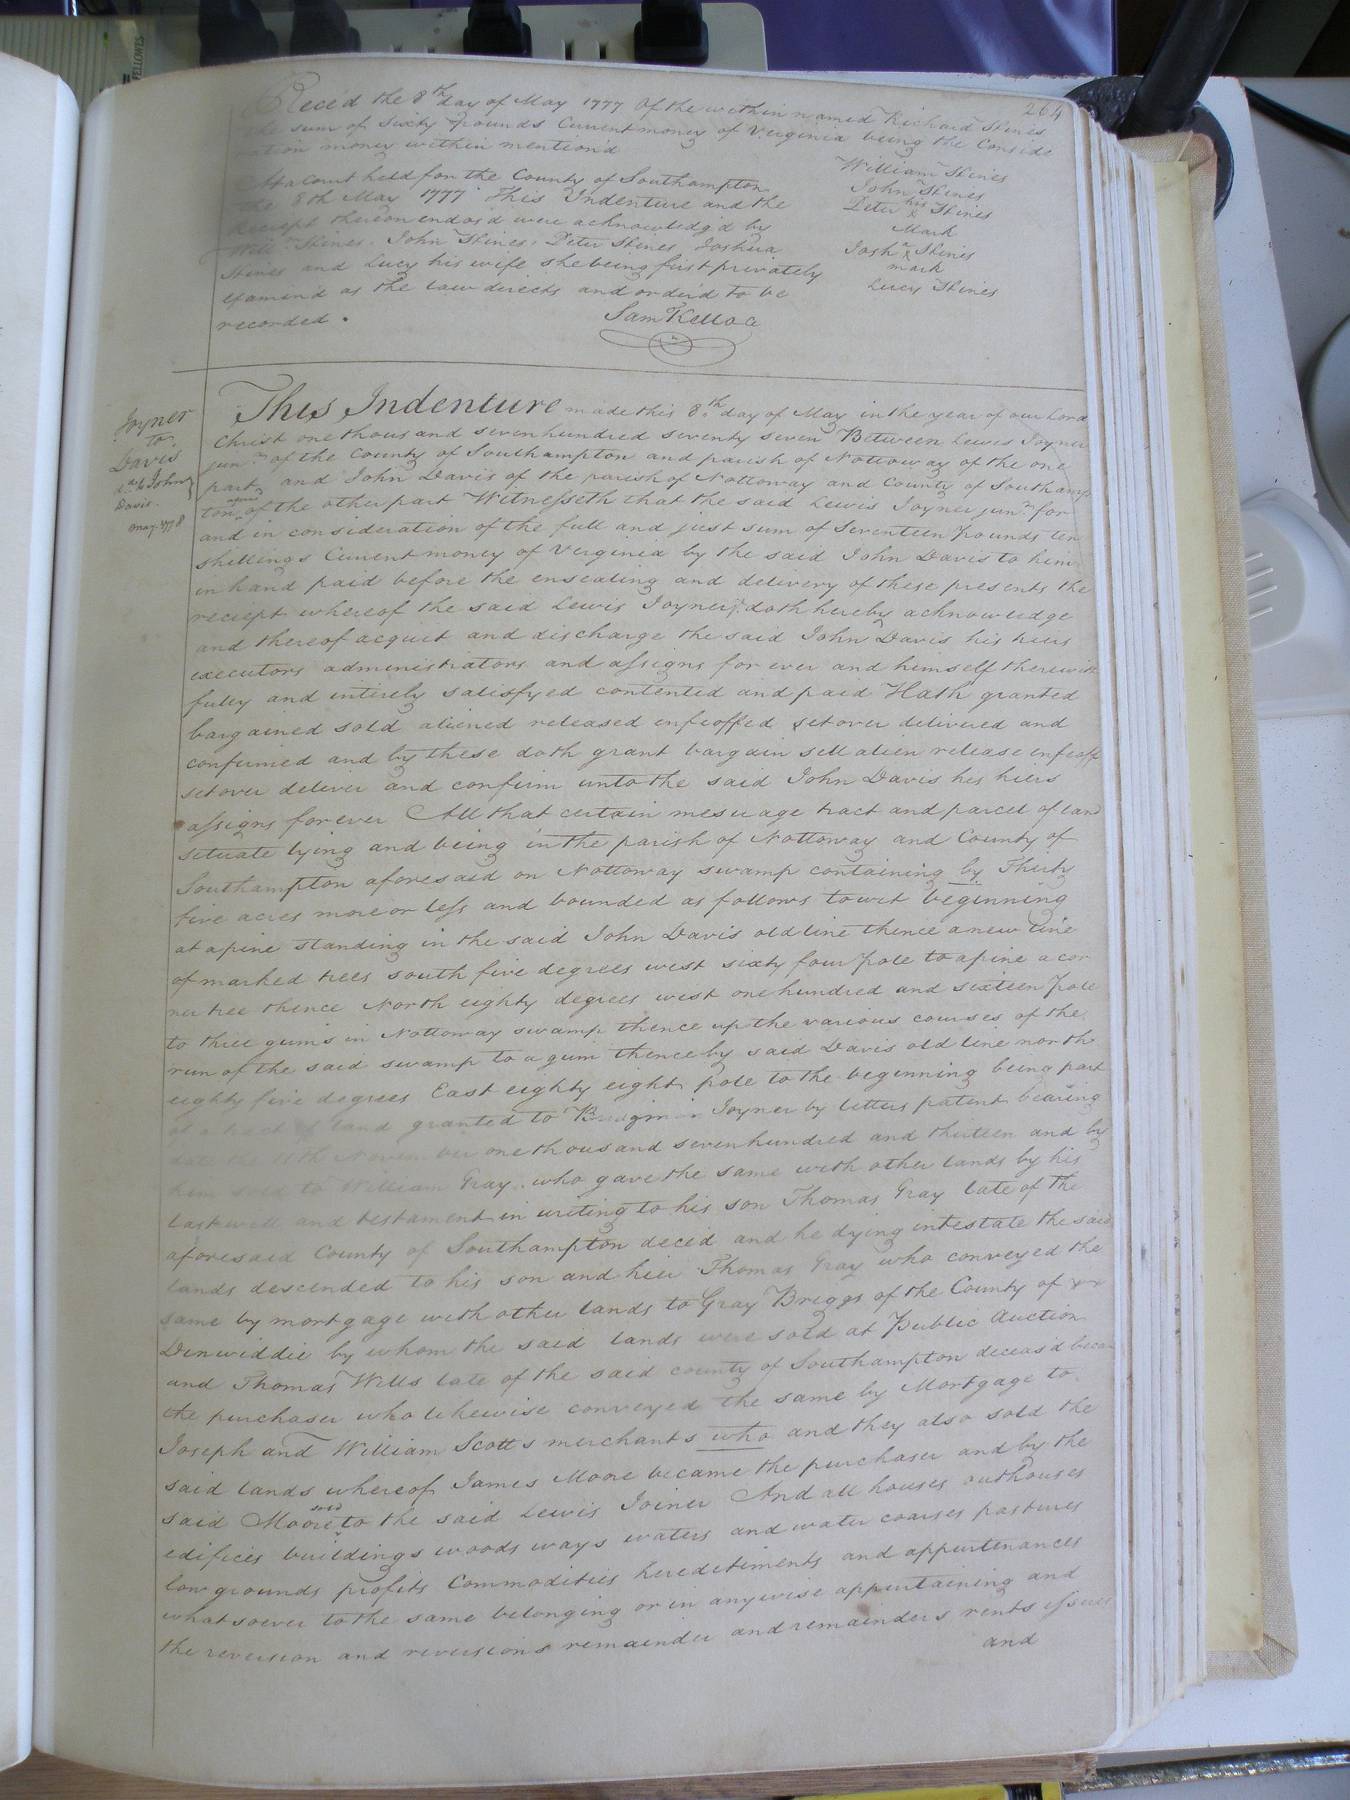 264
Receid the 8th day of May 1777 Of the within named Richard Stines
the sum of Sixty pounds Current money of Virginia being the Conside
ration money within mentiond
William Stines
John Stines
his
Peter x Stines
Mark
Josha x Stines
mark
Lucy Stines
At a Court held for the County of Southampton
the 8th May 1777 This Indenture and the
reciept thereon endors'd were acknowledg'd by
Will.m Stines, John Stines, Peter Stines Joshua
Stines and Lucy his wife she being first privately
examin'd as the law directs and order'd to be
recorded.
Sam Kello C
Joyner
to.
Davis
John
Davis.
may 1778
This Indenture made this 8.th day of May in the year of our Lord
Christ one thousand seven hundred seventy seven Between Lewis Joyner
jun.r of the County of Southampton and parish of Nottoway of the one
part and John Davis of the parish of Nottoway and County of Southamp
ton afores.d of the other part Witnesseth that the said Lewis Joyner jun.r for
and in consideration of the full and just sum of Seventeen pounds ten
shillings Current money of Virginia by the said John Davis to him
in hand paid before the ensealing and delivery of these presents the
reciept whereof the said Lewis Joyner j.r doth hereby acknowledge
and thereof acquit and discharge the said John Davis his heirs
executors administrators and assigns for ever and himself therewith
fully and intirely satisfyed contented and paid Hath granted
bargained sold aliened released enfeoffed set over delivered and
confirmed and by these doth grant bargain sell alien release enfeoff
set over deliver and confirm unto the said John Davis his heirs
assigns for ever All that certain mesuage tract and parcel of land
situate lying and being in the parish of Nottoway and County of
Southampton aforesaid on Nottoway swamp containing by Thirty
five acres more or less and bounded as follows towit beginning
at a pine standing in the said John Davis old line thence a new line
of marked trees south five degrees west sixty four pole to a pine a cor
ner tree thence North eighty degrees west one hundred and sixteen pole
to three gums in Nottoway swamp thence up the various courses of the
run of the said swamp to a gum thence by said Davis old line north
eighty five degrees East eighty eight pole to the beginning being part
of a tract of land granted to Bridgman Joyner by letters patent bearing
date the 11th November one thousand seven hundred and thirteen and by
him sold to William Gray, who gave the same with other lands by his
last will and testament in writing to his son Thomas Gray late of the
aforesaid County of Southampton deced and he dying intestate the said
lands descended to his son and heir Thomas Gray who conveyed the
same by mortgage with other lands to Gray Briggs of the County of
Dinwiddie by whom the said lands were sold at Public Auction
and Thomas Wills late of the said county of Southampton deceas'd becam
the purchaser who likewise conveyed the same by Mortgage to
Joseph and William Scotts merchants who and they also sold the
said lands whereof James Moore became the purchaser and by the
said Moore sold to the said Lewis Joiner And all houses outhouses
edifices buildings woods ways waters and water coarses pastures
low grounds profits Commodities heredetiments and appurtenances
whatsoever to the same belonging or in anywise appurtaining and
the reversion and reversions remainder and remainders rents issues
and